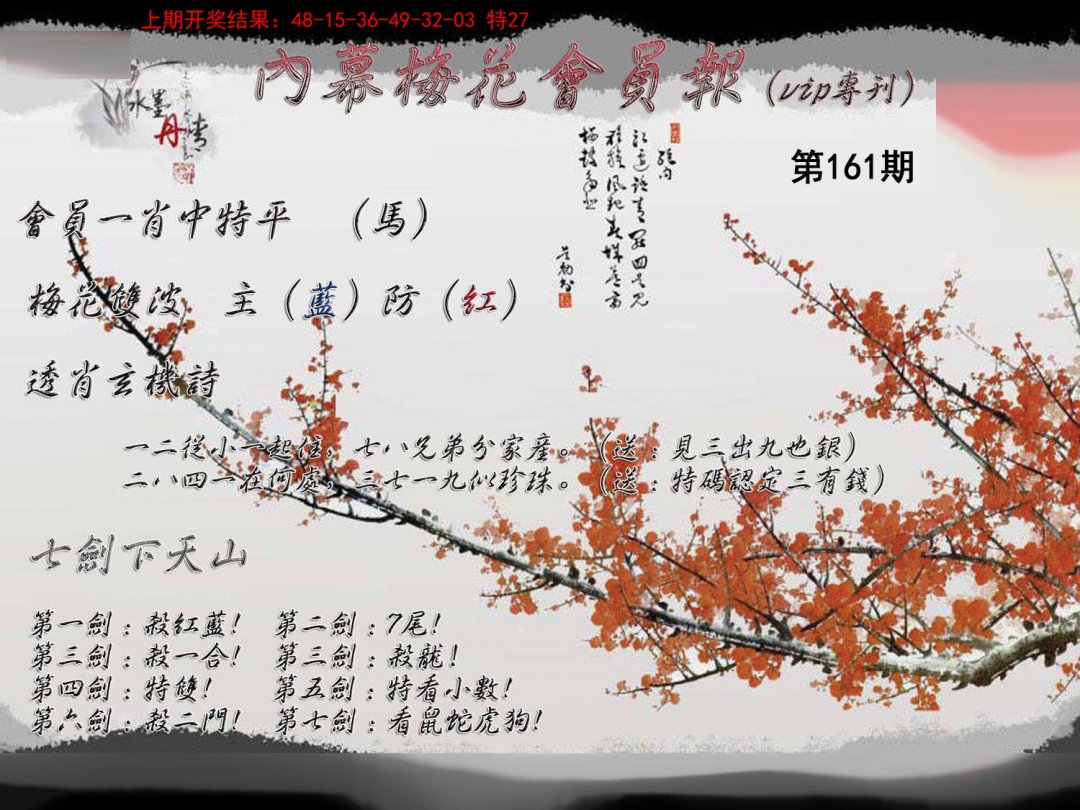 上期开奖结果：48-15-36-49-32-03 特27
內幕梅花會員報（vip專刊）
水墨丹青
第161期
會員一肖中特平　（馬）
梅花雙波　主（藍）防（紅）
透肖玄機詩
一二從小一起住，七八兄弟分家産。（送：見三出九也銀）
二八四一在何處，三七一九似珍珠。（送：特碼認定三有錢）
七劍下天山
第一劍：殺紅藍！　第二劍：7尾！
第三劍：殺一合！　第三劍：殺龍！
第四劍：特雙！　第五劍：特看小數！
第六劍：殺二門！　第七劍：看鼠蛇虎狗！